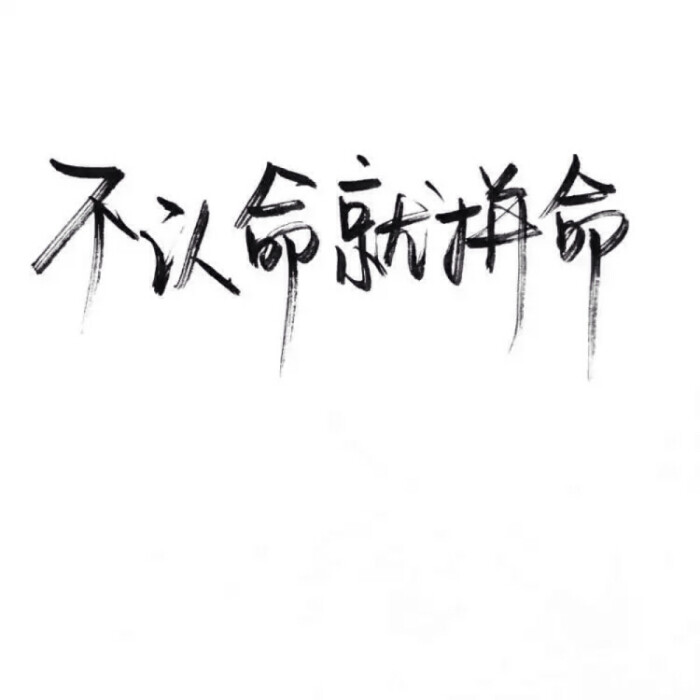 不认命就拼命